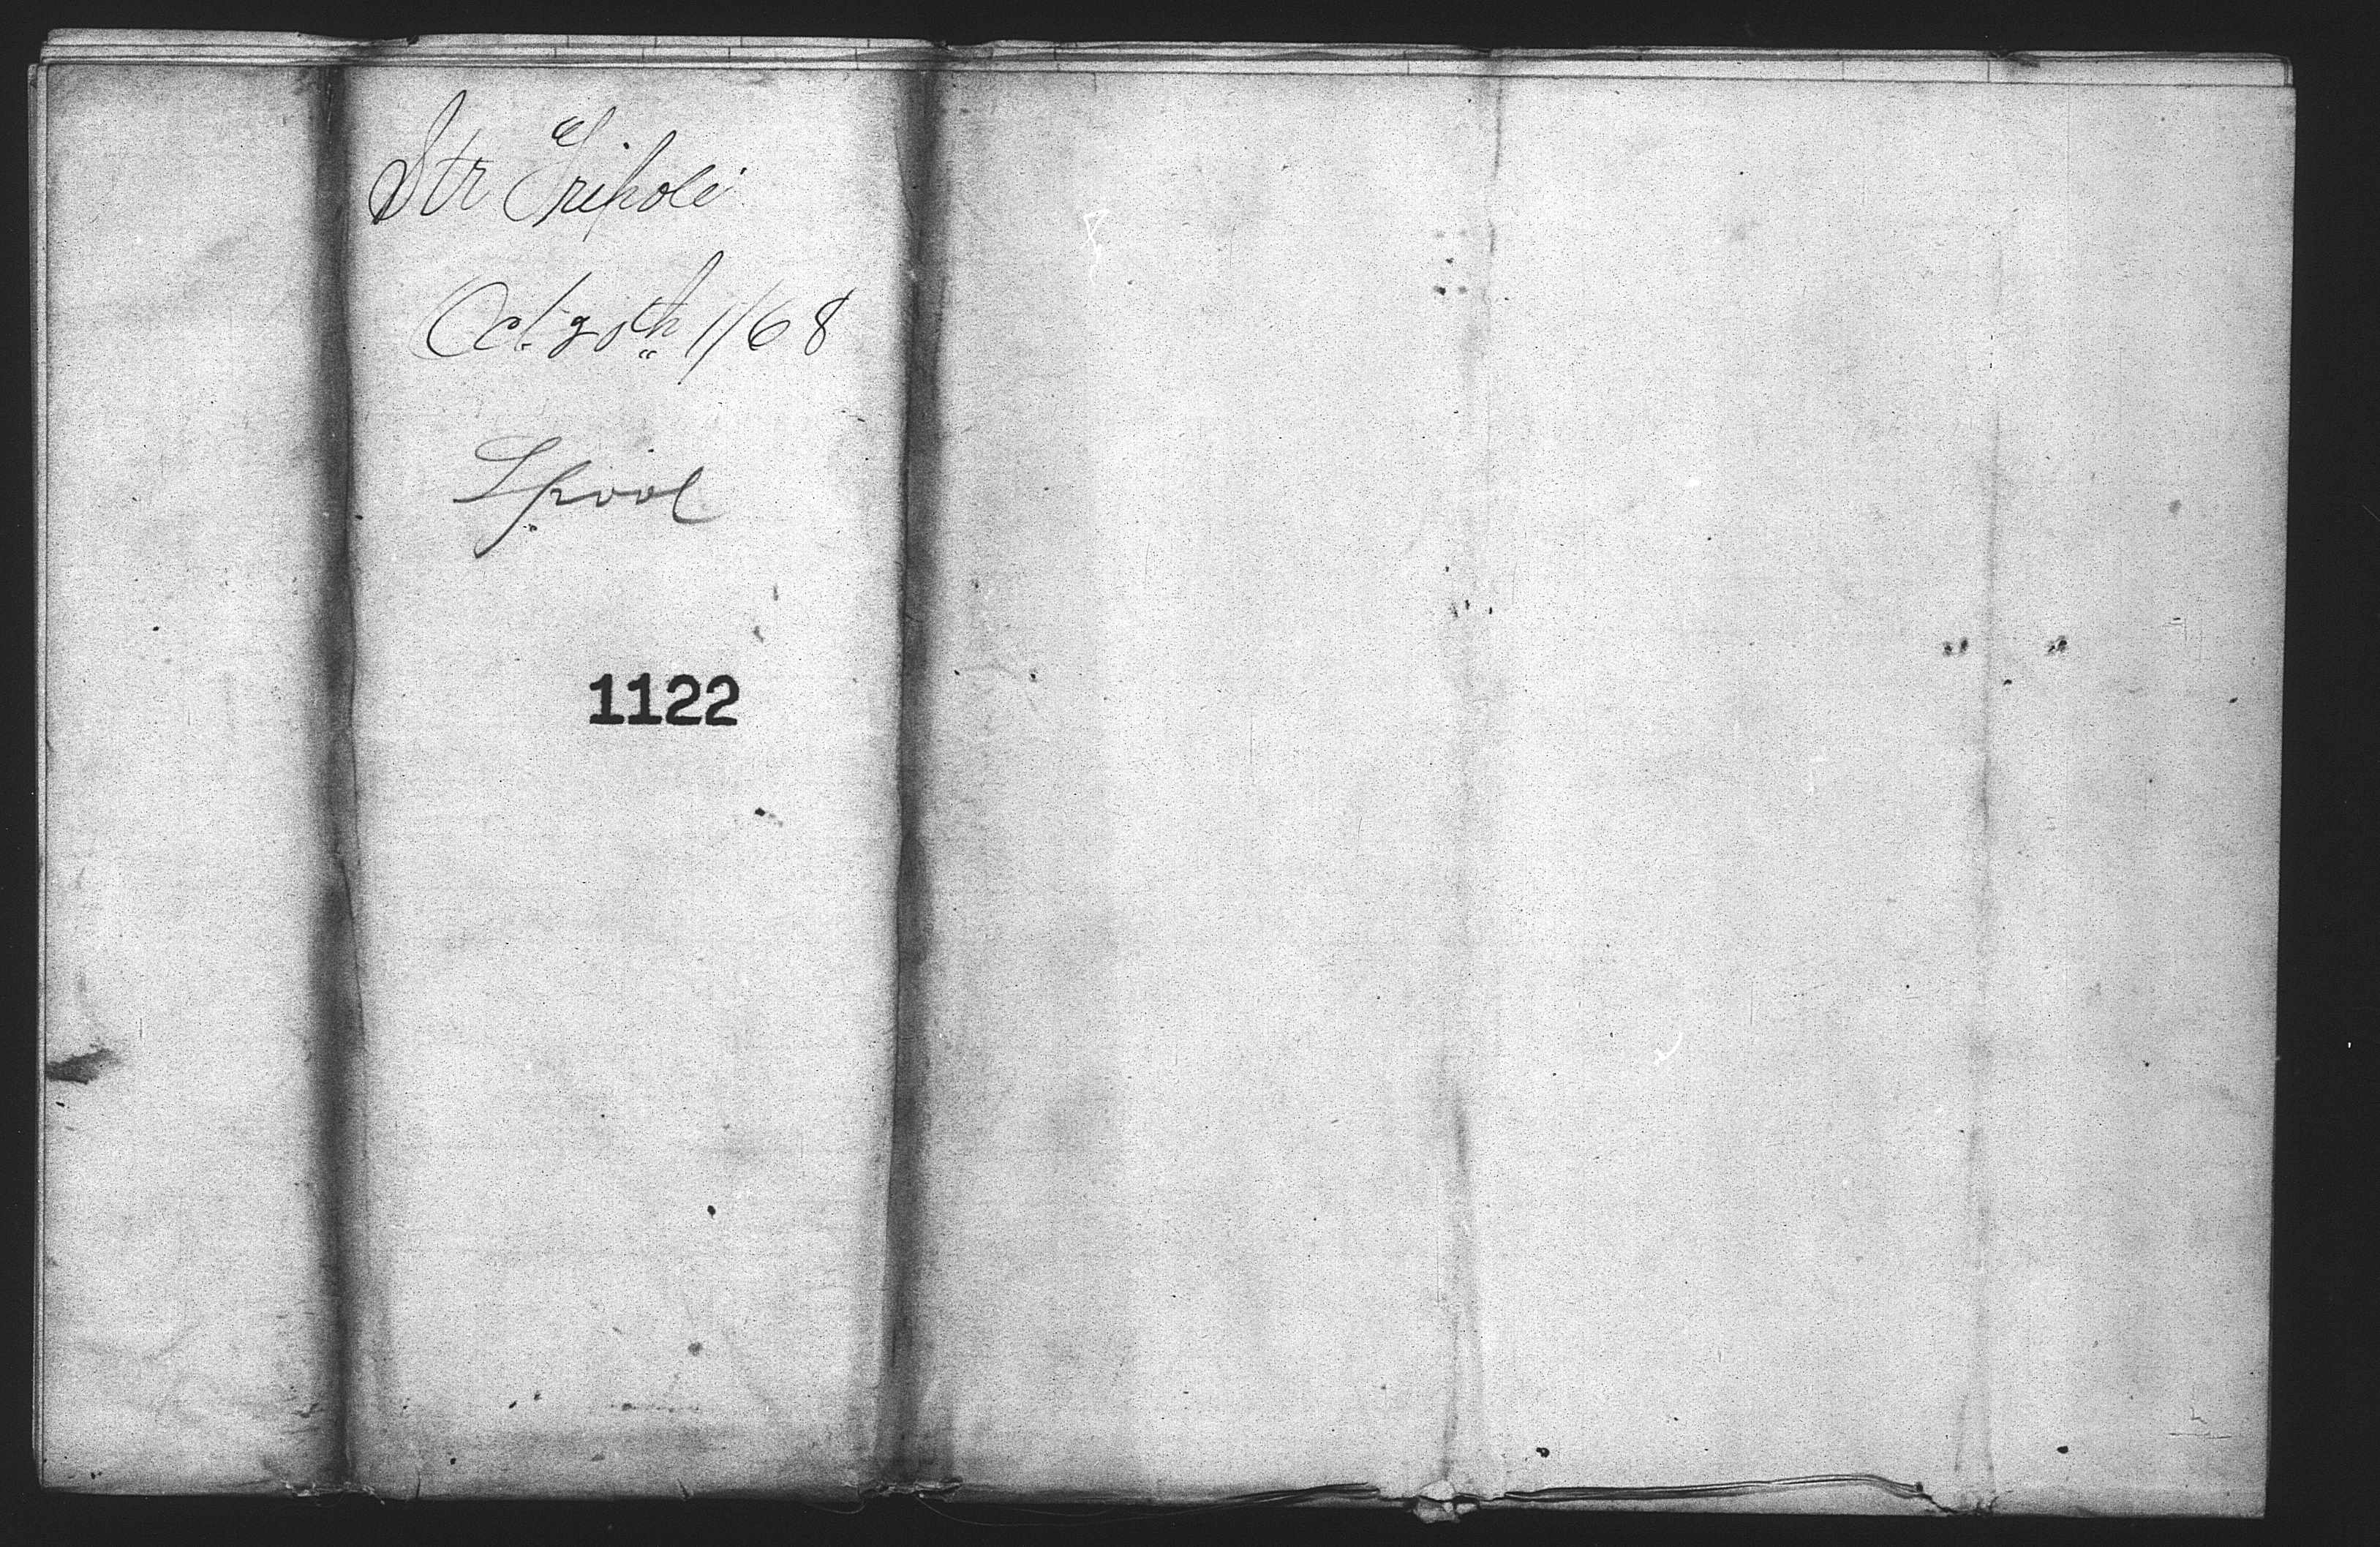 Str Tripoli
Oct 20th 1/68
Lpool
1122